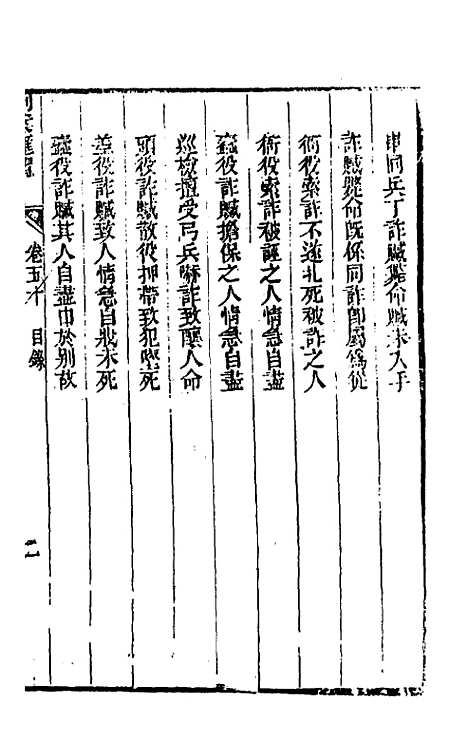 串同兵丁詐贓斃命贓未入手
詐贓斃命旣係同詐卽屬爲從
衙役索詐不遂扎死被詐之人
衙役索詐被誣之人情急自盡
蠹役詐贓擔保之人情急自盡
巡檢擅受弓兵嚇詐致釀人命
頭役詐贓散役押帶致犯墜死
差役詐贓致人情急自戕未死
蠹役詐贓其人自盡由於別故
卷五十 目錄